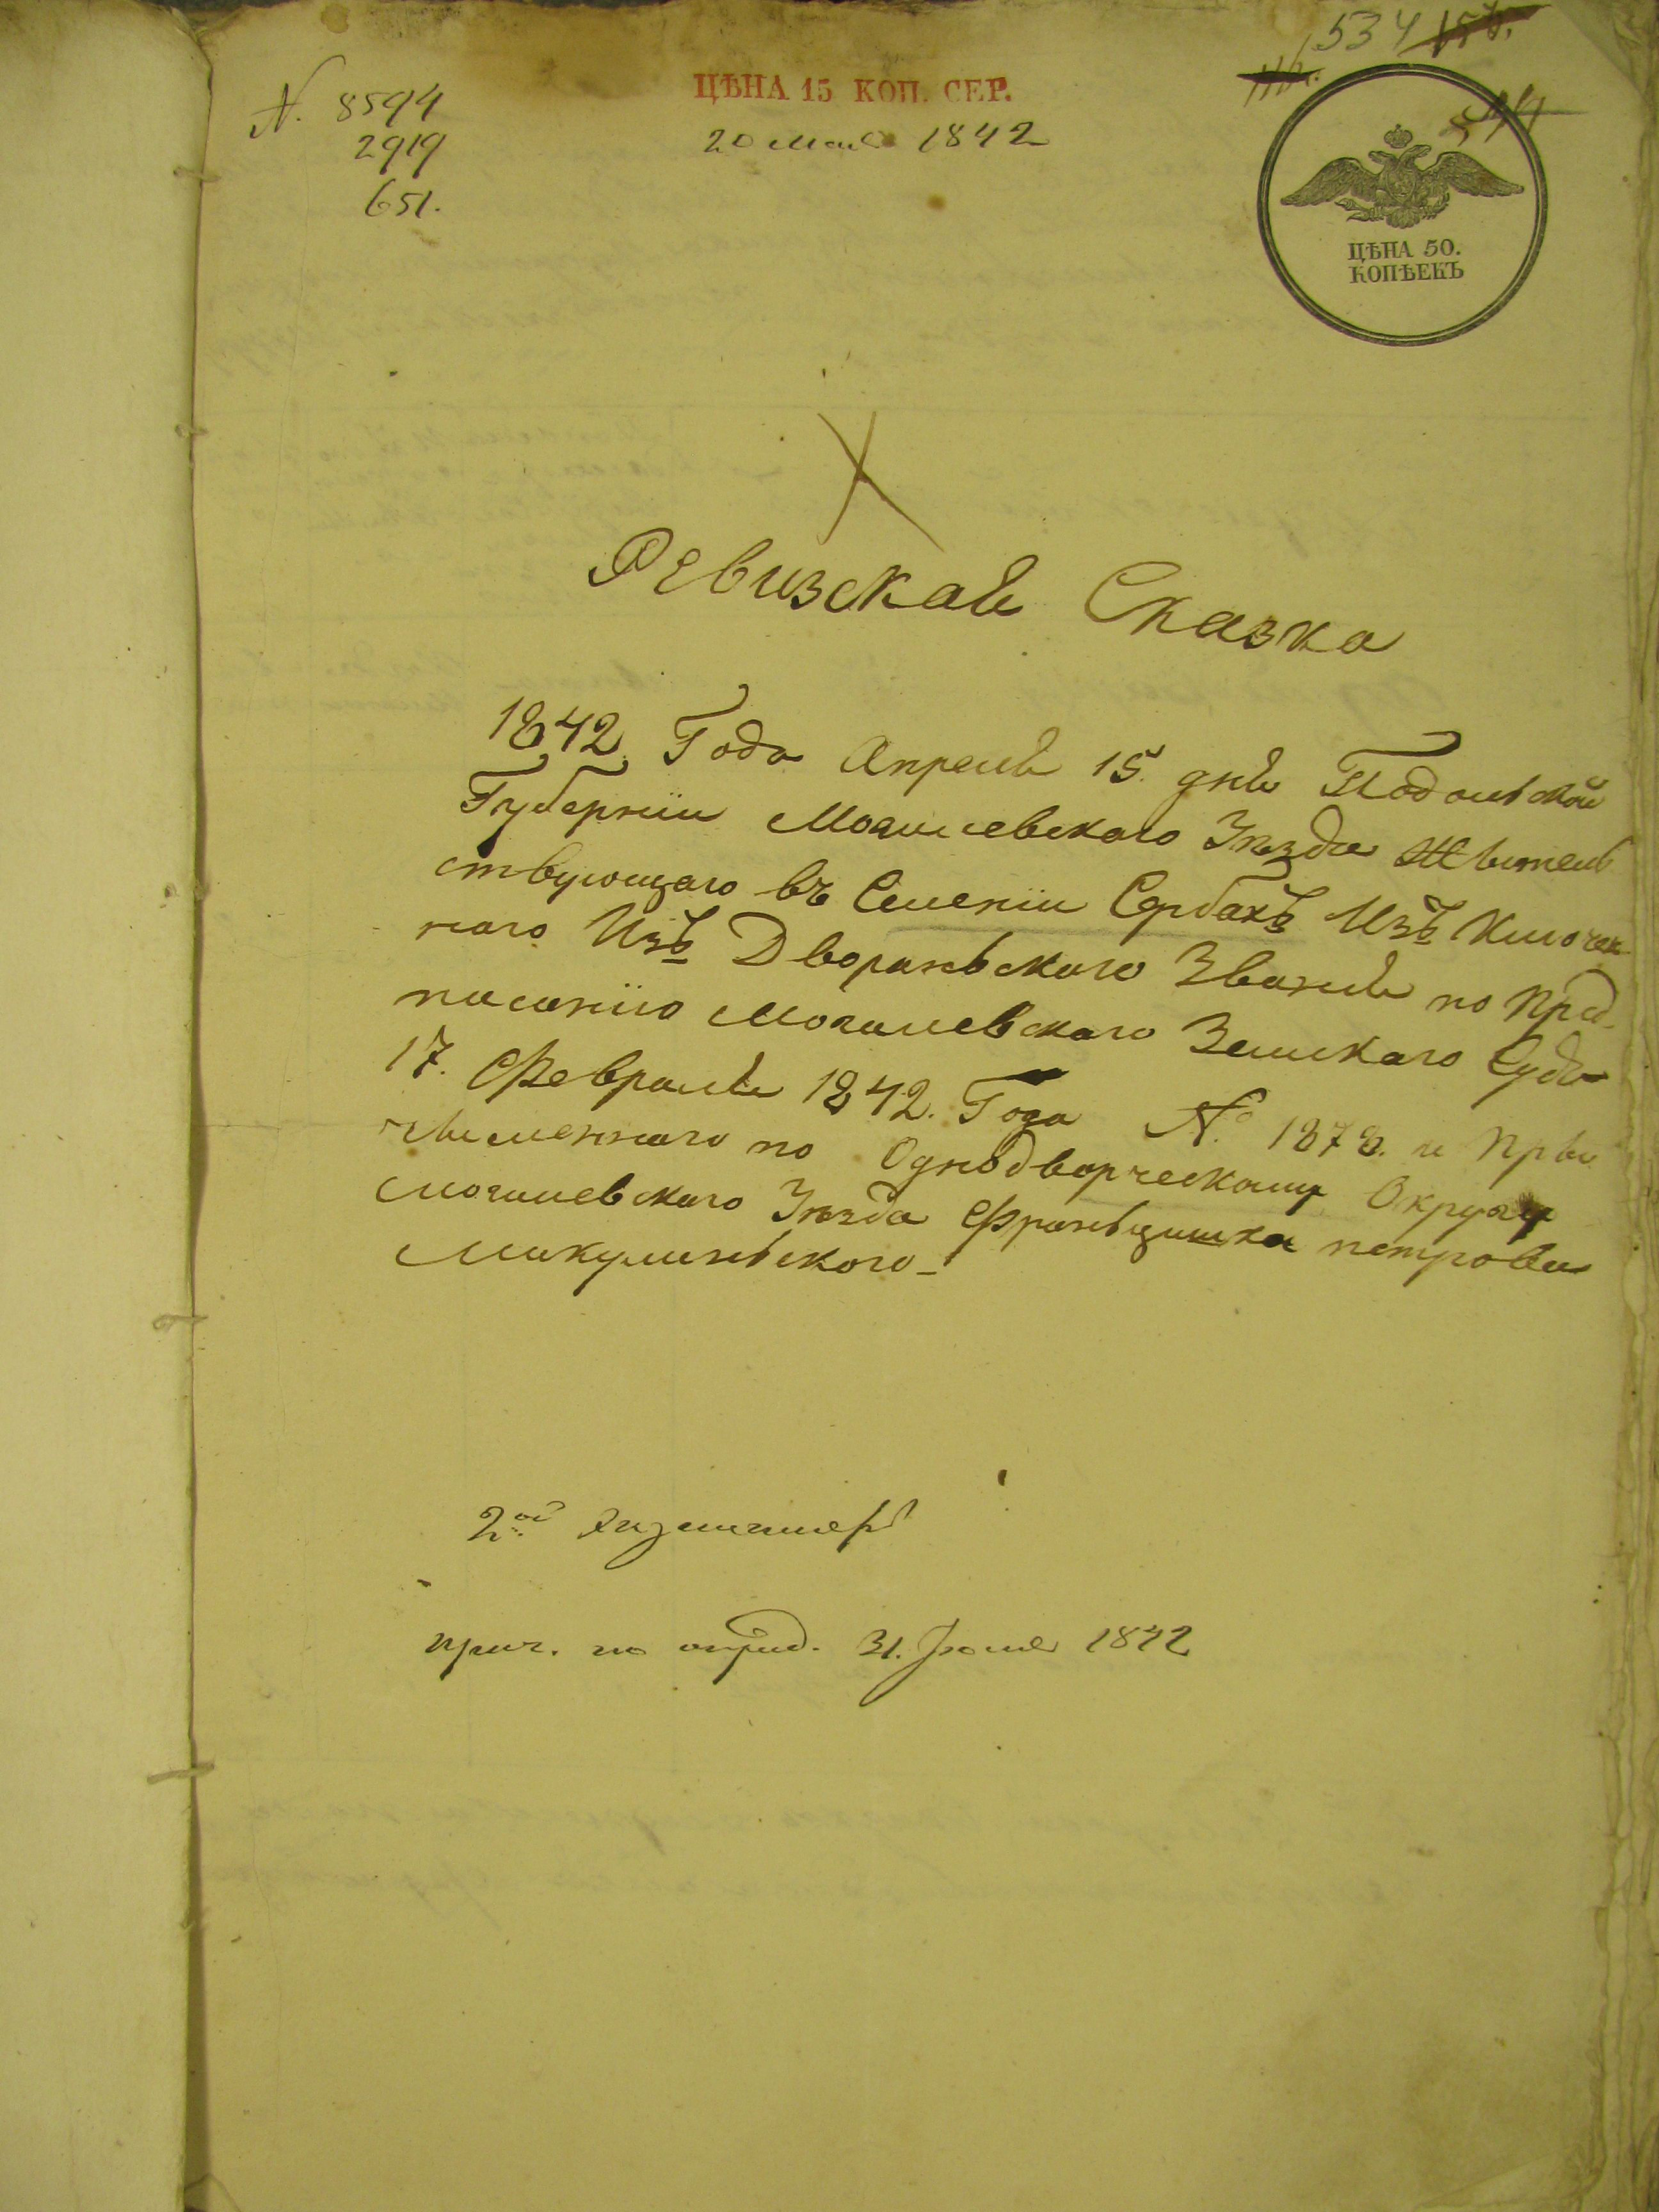 534
N. 8594
2919
651.
ЦѢНА 15 КОП. СЕР.
20 мая 1842
ЦѢНА 50.
КОПѢЕКЪ
Ревизская Сказка
1842. Года Апреля 15. дня Подольской
Губернїи Могилевского Уѣзда Жытель
ствующаго въ Селенїи Сербахъ Изъ Ключен
наго Изъ Двораньского Званія по Пред
писанїю Могилевскаго Земскаго Суда
17. Февраля 1842. Года № 1878. и Пры
чысленнаго по Однодворческому Округу
Могилевскаго Уѣзда Франьцишка петрова
Микулиньского
2ой Экземпляръ
прич. по опред. 31. Іюля 1842